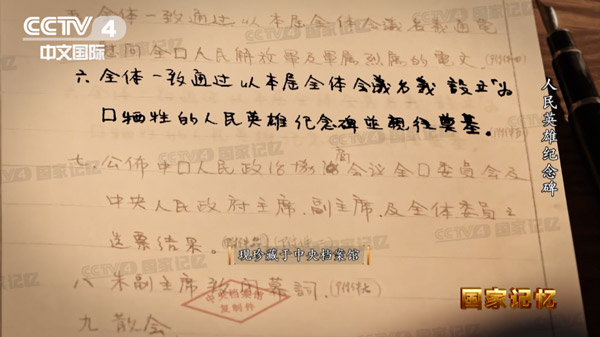 CCTV 4
中文国际
五 全体一致通过以本届全体会議名義通电
慰问全口人民解放軍及軍属烈属的電文
六 全体一致通过以本届全体会議名義設立「为
口犧牲的人民英雄纪念碑並親往奠基。
七 公佈中口人民政治協商会议全口委員会及
中央人民政府主席、副主席、及全体委員之
选票结果。
现珍藏于中央档案馆
八 朱副主席致闭幕詞.
中央档案馆
复制件
九 散会
人民英雄纪念碑
国家记忆